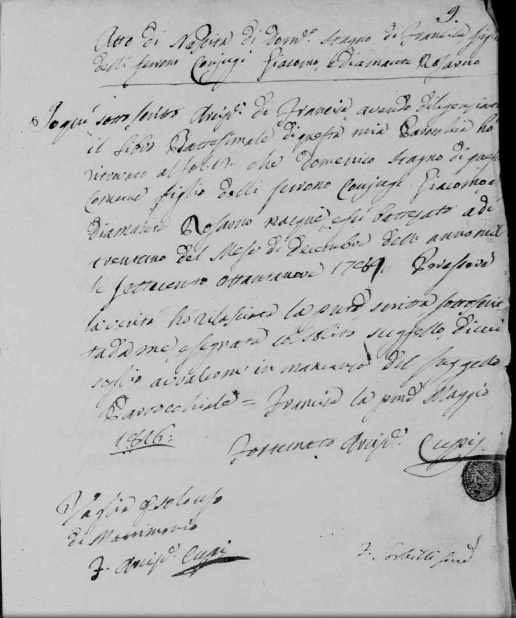 9.
Atto di Nascita di Dom.co Stagno di Francica figlio
delli furono Conjugi Giacomo, e Diamante Rosarno
Io qui sottoscritto Arcip.e di Francica, avendo diligenziato
il libro Battesimale di questa mia Parocchia ho
ritrovato al fol. che Domenico Stagno di questo
Comune figlio delli furono Conjugi Giacomo, e
Diamante Rosarno nacque, e fu battezato a dì
trentuno del Mese di Decembre dell'anno mil
le settecento ottantanove 1789,, Per essere
la verità ho rilasciato la pnte scritta sottoscrit
ta da me, e segnata col solito suggello, di cui
soglio avvalermi in mancanza del suggello
Parrocchiale = Francica la pmo Maggio
1816:
Fortunato Arcip.e Cupi
Vaglia per solo uso
di Matrimonio
F. Arcip.e Cupi
F. Sorbilli Sind.